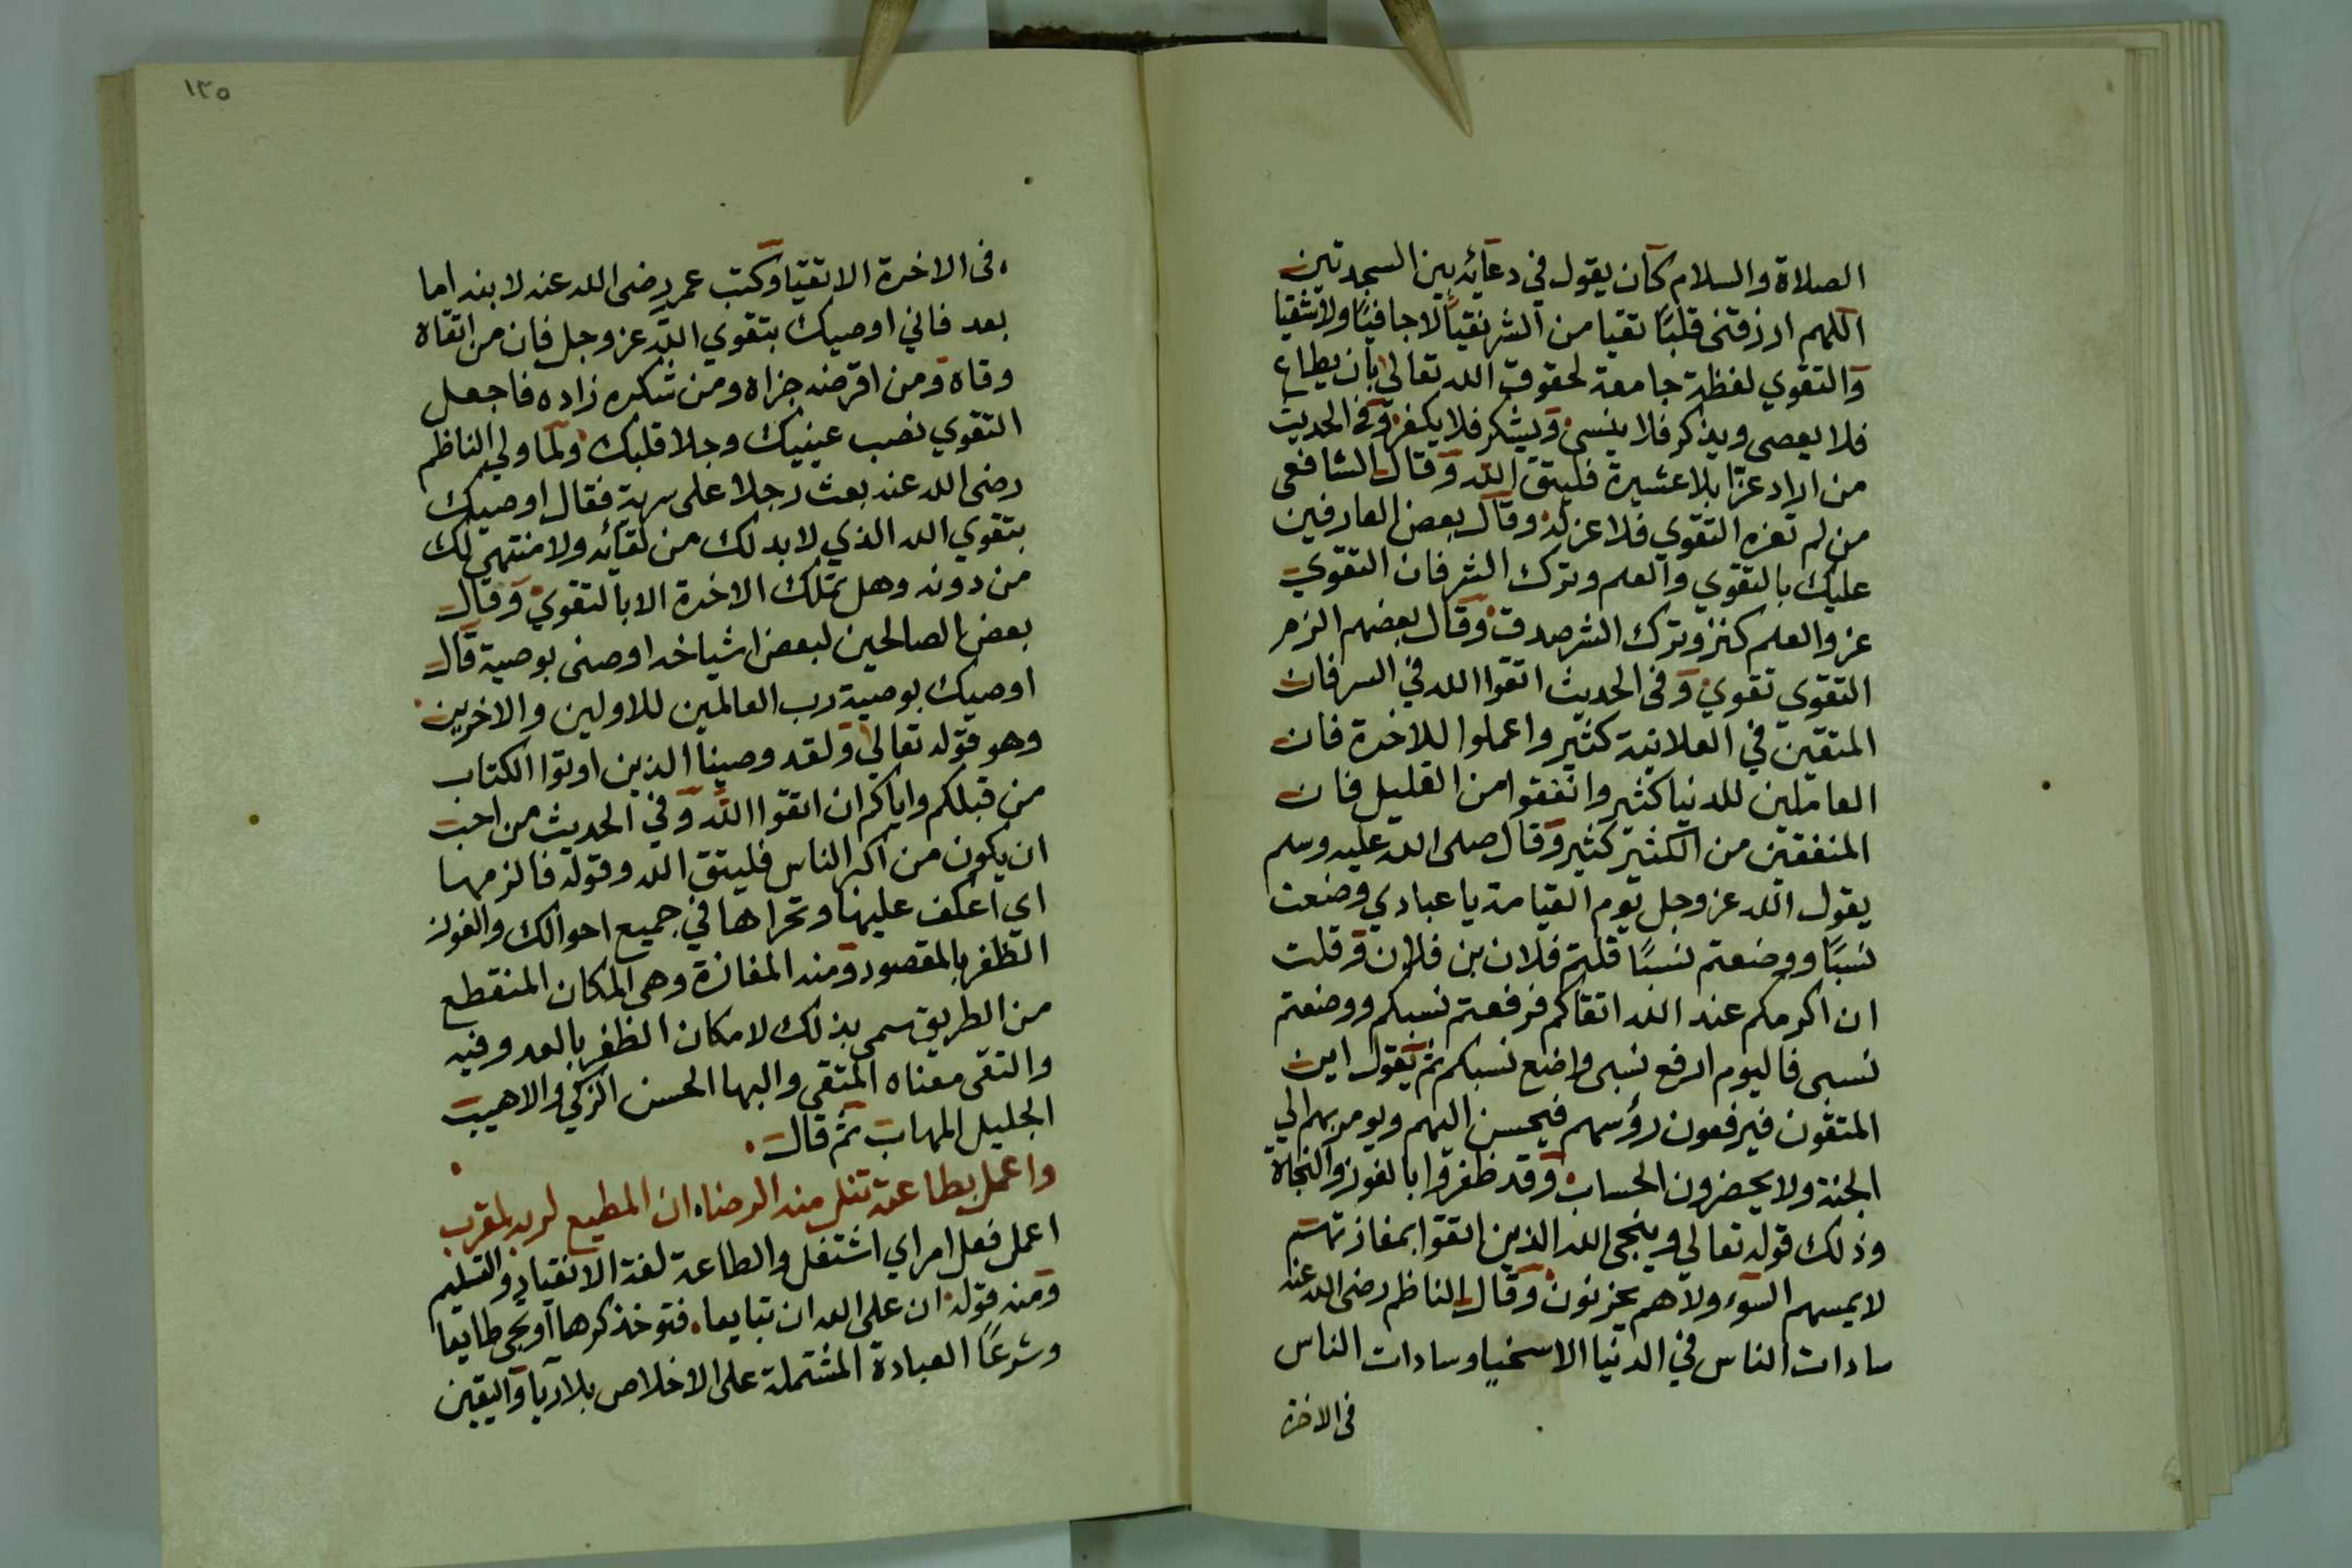 الصلاة والسلام كان يقول في دعائه بين السجدتين
اللهم ارزقني قلبًا تقيا من الشر نقيا لا جافيًا ولا شقيا
والتقوي لفظة جامعة لحقوق الله تعالي بان يطاع
فلا يعصى ويذكر فلا ينسى ويشكر فلا يكفر وفي الحديث
من اراد عزا بلا عشيرة فليتق الله وقال الشافعى
من لم تعزه التقوي فلا عز له وقال بعض العارفين
عليك بالتقوي والعلم وترك الشر فان التقوي
عز والعلم كنز وترك الشر صدقة وقال بعضهم الزم
التقوي تقوي وفى الحديث اتقوا الله في السر فان
المتقين في العلانية كثير واعملوا للاخرة فان
العاملين للدنيا كثير وانفقوا من القليل فان
المنفقين من الكثير كثير وقال صلى الله عليه وسلم
يقول الله عز وجل يوم القيامة يا عبادي وضعت
نسبًا ووضعتم نسبًا قلتم فلان بن فلان وقلت
ان اكرمكم عند الله اتقاكم فرفعتم نسبكم ووضعتم
نسبى فاليوم ارفع نسبى واضع نسبكم ثم يقول اين
المتقون فيرفعون رؤسهم فيحسن اليهم ويومر بهم الي
الجنة ولا يحضرون الحساب وقد ظفروا بالفوز والنجاة
وذلك قوله تعالي وينجى الله الذين اتقوا بمفازتهم
لا يمسهم السوء ولا هم يحزنون وقال الناظم رضى الله عنه
سادات الناس في الدنيا الاسخيا وسادات الناس
فى الاخرة
١٣٥
فى الاخرة الاتقيا وكتب عمر رضى الله عنه لابنه اما
بعد فاني اوصيك بتقوي الله عز وجل فان من اتقاه
وقاه ومن اقرضه جزاه ومن شكره زاده فاجعل
التقوي نصب عينيك وجلا قلبك ولما ولي الناظم
رضى الله عنه بعث رجلا على سرية فقال اوصيك
بتقوي الله الذي لا بد لك من لقائه ولا منتهى لك
من دونه وهل تملك الاخرة الا بالتقوي وقال
بعض الصالحين لبعض اشياخه اوصنى بوصية قال
اوصيك بوصية رب العالمين للاولين والاخرين
وهو قوله تعالي ولقد وصينا الذين اوتوا الكتاب
من قبلكم واياكم ان اتقوا الله وفي الحديث من احب
ان يكون من اكبر الناس فليتق الله وقوله فالزمها
اي اعكف عليها وتحراها في جميع احوالك والفوز
الظفر بالمقصود ومنه المفازة وهى المكان المنقطع
من الطريق سمى بذلك لامكان الظفر بالعدو فيه
والتقى معناه المتقي والبها الحسن الزكي والاهيب
الجليل المهاب ثم قال
واعمل بطاعته تنل منه الرضا ان المطيع لربه لمقرب
اعمل فعل امر اي اشتغل والطاعة لغة الانقياد والتسليم
ومنه قوله ان على الله ان تبايعا فتوخذ كرها او تجى طايعا
وشرعًا العبادة المشتملة على الاخلاص بلا ريا واليقين